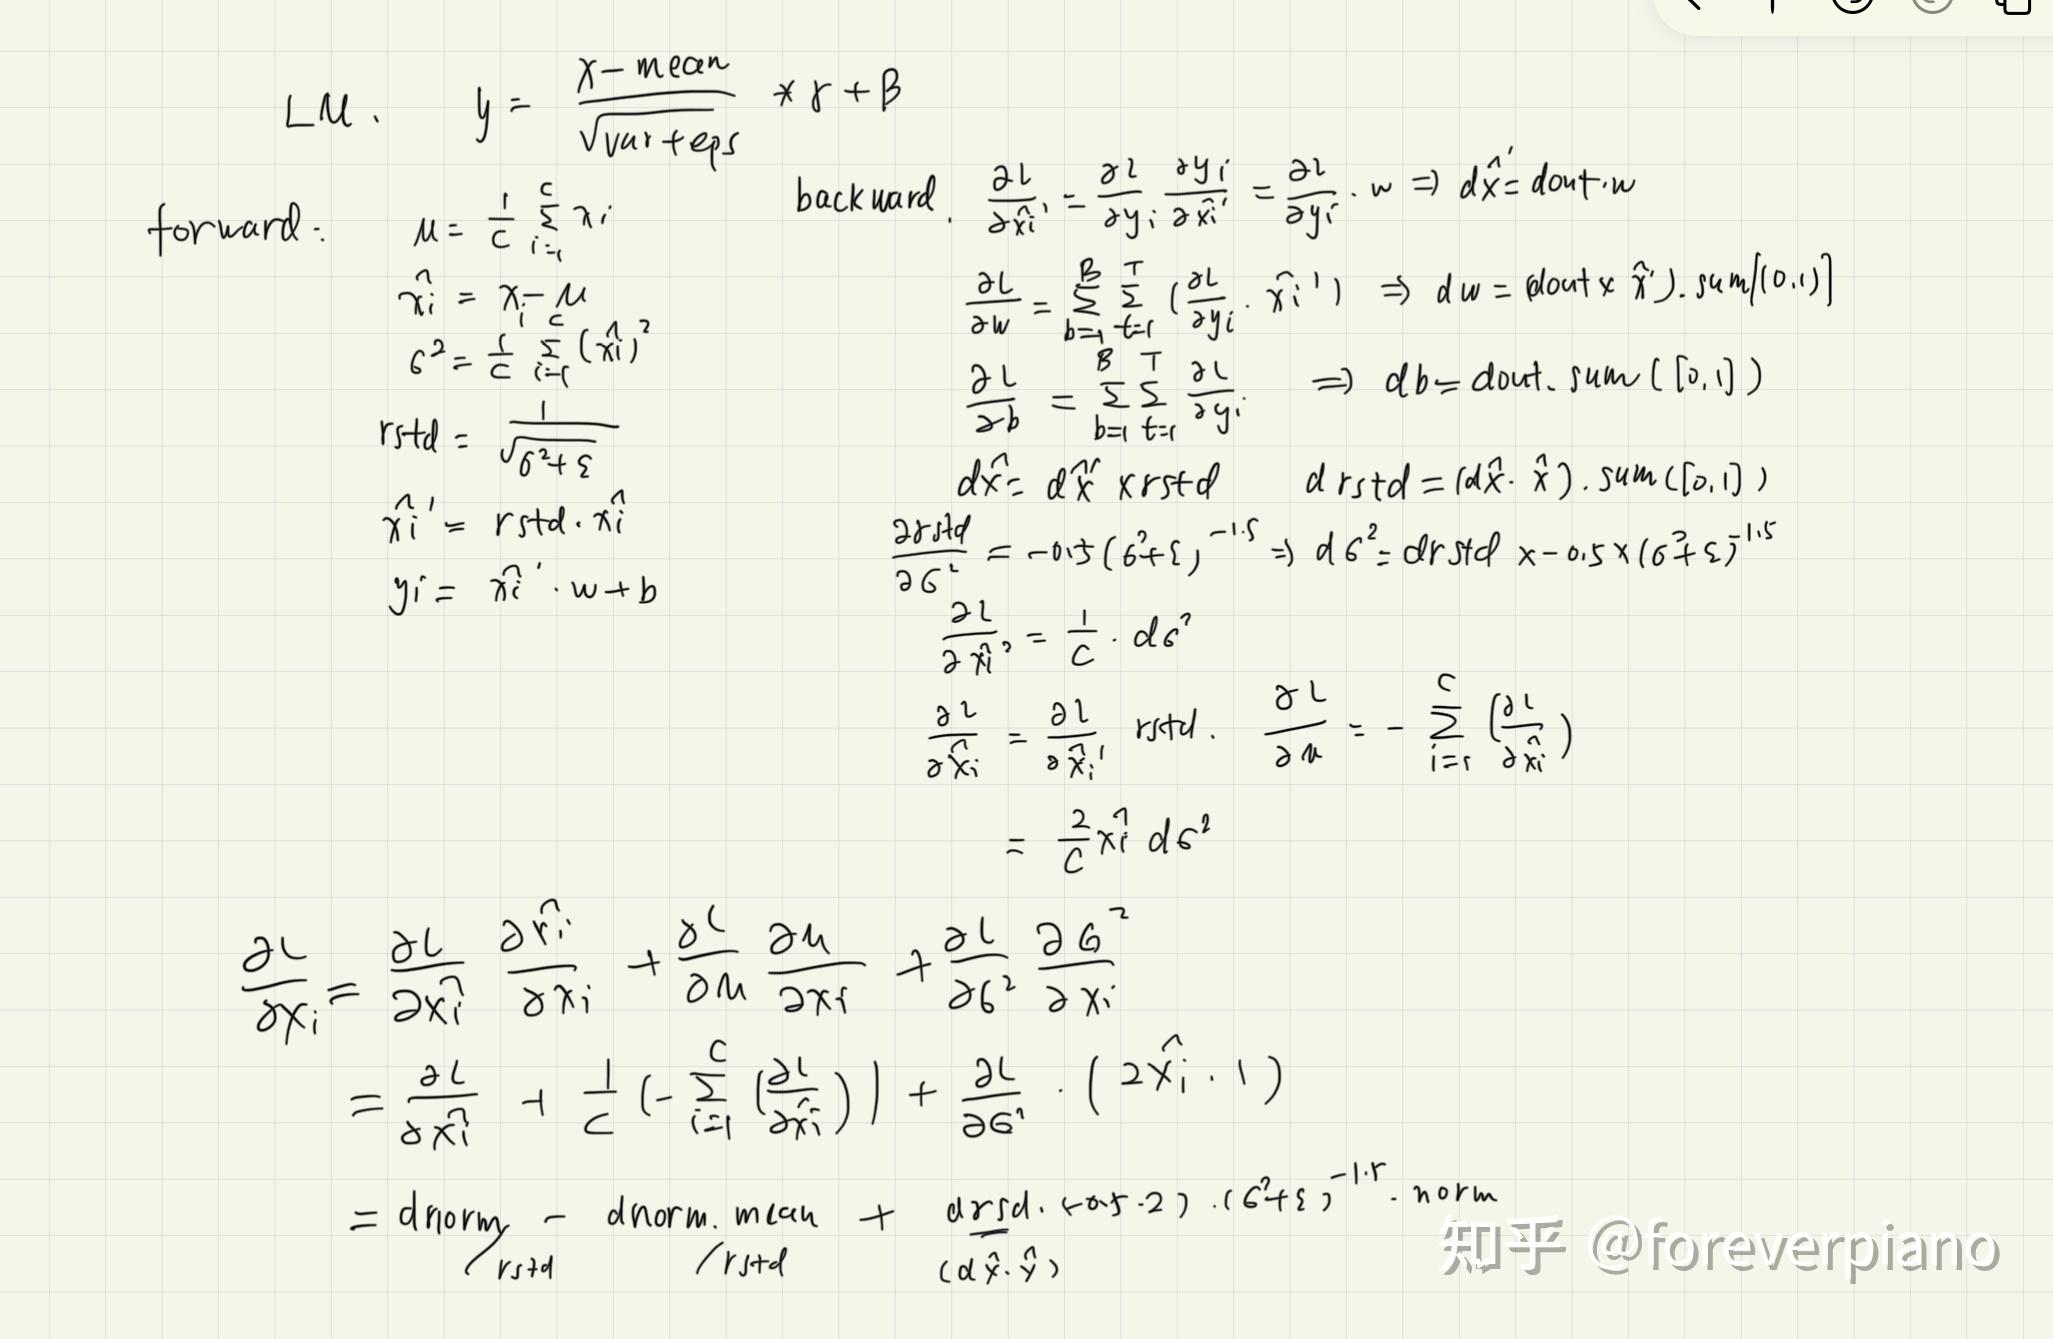 LM. y = (x - mean)/√(var + eps) * γ + β
forward: μ = 1/C Σ_{i=1}^{C} xi
x̂i = xi - μ
σ² = 1/C Σ_{i=1}^{C} (x̂i)²
rstd = 1/√(σ² + ε)
x̂i' = rstd · x̂i
yi = x̂i' · w + b
backward. ∂L/∂x̂i' = ∂L/∂yi ∂yi/∂x̂i' = ∂L/∂yi · w ⇒ dx̂' = dout · w
∂L/∂w = Σ_{b=1}^{B} Σ_{t=1}^{T} (∂L/∂yi · x̂i') ⇒ dw = (dout × x̂'). sum[(0,1)]
∂L/∂b = Σ_{b=1}^{B} Σ_{t=1}^{T} ∂L/∂yi ⇒ db = dout. sum([0,1])
dx̂ = dx̂' × rstd drstd = (dx̂ · x̂). sum([0,1])
∂rstd/∂σ² = -0.5(σ² + ε)^{-1.5} ⇒ dσ² = drstd × -0.5 × (σ² + ε)^{-1.5}
∂L/∂x̂i² = 1/C · dσ²
∂L/∂x̂i = ∂L/∂x̂i' rstd. ∂L/∂μ = - Σ_{i=1}^{C} (∂L/∂x̂i)
= 2/C x̂i dσ²
∂L/∂xi = ∂L/∂x̂i ∂x̂i/∂xi + ∂L/∂μ ∂μ/∂xi + ∂L/∂σ² ∂σ²/∂xi
= ∂L/∂x̂i + 1/C (- Σ_{i=1}^{C} (∂L/∂x̂i)) + ∂L/∂σ² · (2x̂i · 1)
= dnorm/rstd - dnorm. mean/rstd + drsd. (-0.5 · 2) · (σ² + ε)^{-1.5} · norm
(dx̂ · x̂)
知乎 @foreverpiano